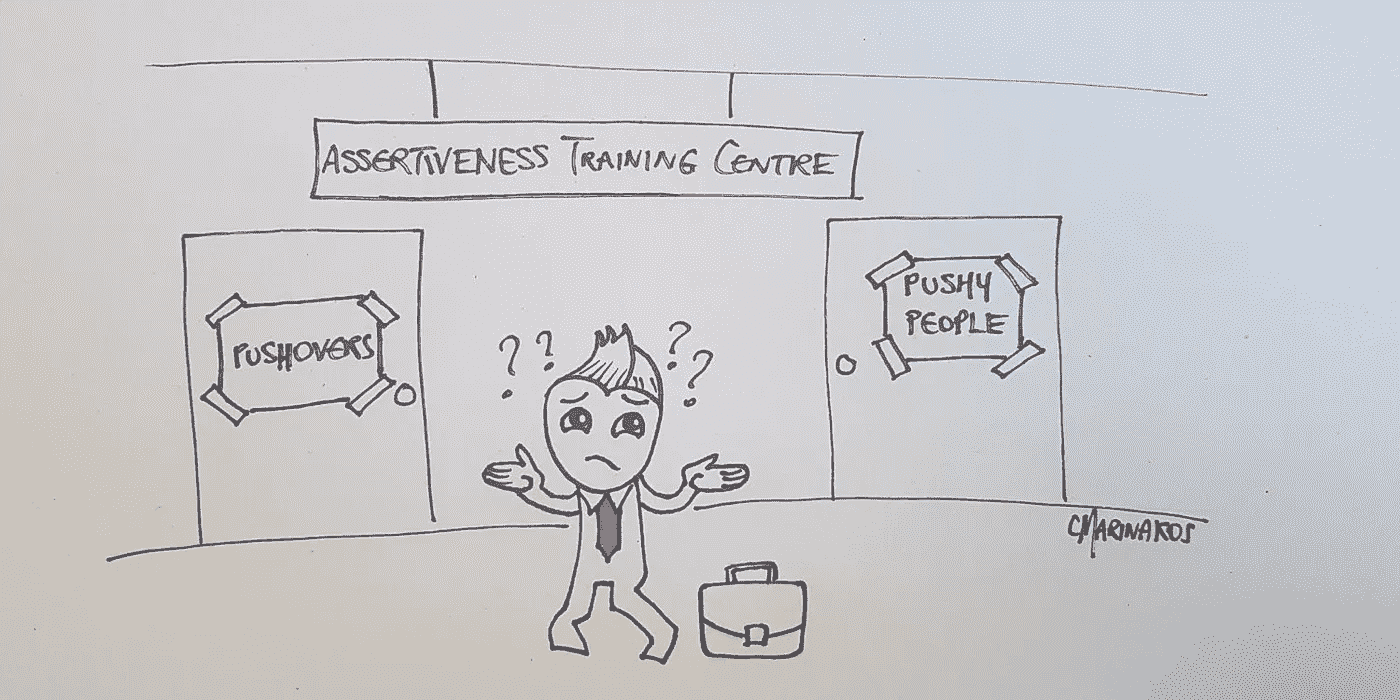 ASSERTIVENESS TRAINING CENTRE
PUSHOVERS
PUSHY
PEOPLE
? ? ? ?
CMARINAKOS